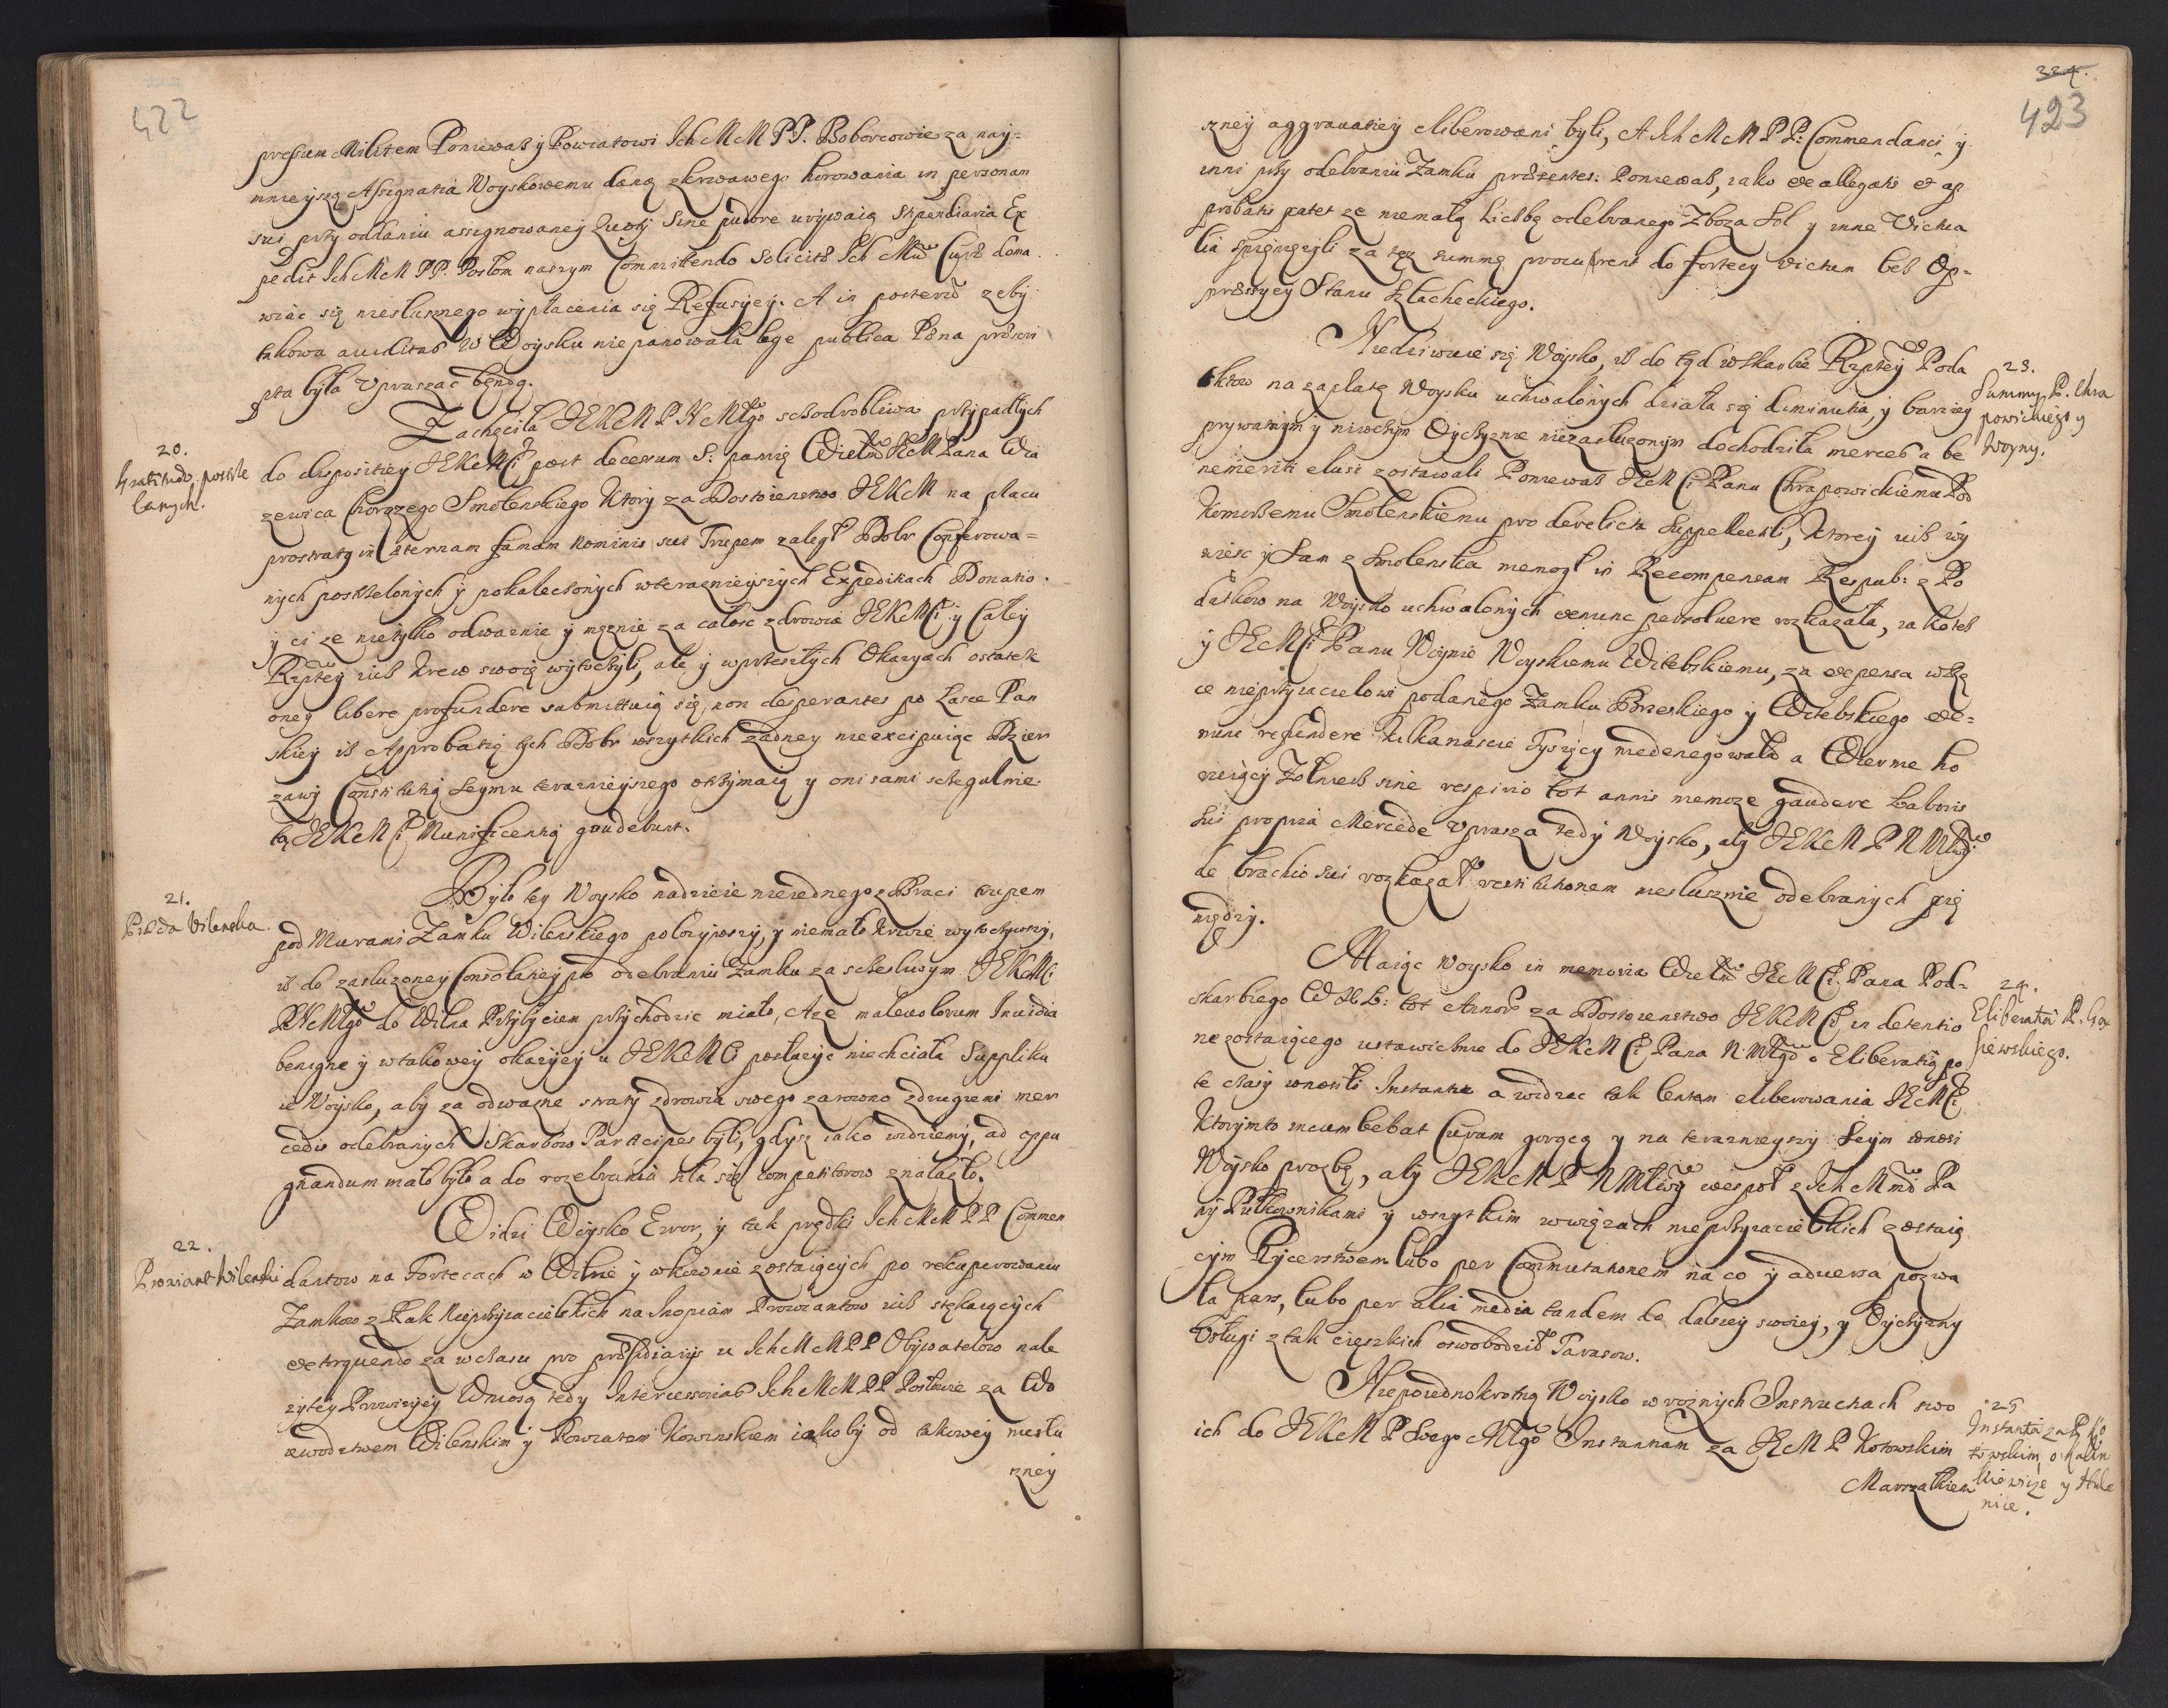 422
pressum Militem Poniewasz y Powiatowi Ich McM PP. Poborcowie za nay=
mnieyszą Assignatią Woyskowemu daną z krwawego horowania in personam
sui przy oddaniu assignowaney Quoty Sine pudore urywaią Stipendiaria Ex
pedit Ich McM PP. Posłom naszym Committendo Solicite Ich Mciow Cupr dona
wiac się niesłusznego wypłacenia się Refusyey. A in posterū zeby
takowa auiditas w Woysku nie panowała lege publica Poena praescri
pta była Vpraszac będą.
20.
Gratitudo postrze
lanych.
Zachęciła JEKcM P N Młgo sczodrobliwa przypadłych
do dispositiey JEKcMCi post decessum S: pamię Wielm JKcM Pana Wia
zewica Chorązego Smolenskiego Ktory za Dostoienstwo JEKcM na placu
prostratę in aeternam famam nominis sui Trupem zaległ Dobr Conferowa=
nych postrzelonych y pokaleczonych w terazniejszych Expeditiach Donatio
y ci ze nie tylko odwaznie y męznie za całosc zdrowia JEKcMCi y Całey
Rzptey iusz krew swoię wytoczyli, ale y w przeszłych Okazyach ostatek
oney libere profundere submittuią się, non desperantes po Łasce Pan
skiey isz Approbatią tych Dobr wszytkich zadney nie excipuiąc Dzier
zawy Constitutią Seymu terazniejszego otrzymaią y oni sami sczegulnie
tą JEKcMCi Munificentią gaudebunt.
21.
Preda Vilenska.
Było tey Woysko nadzieie nieiednego z Braci trupem
pod Murami Zamku Wilenskiego połozywszy, y niemało krwie wytoczywszy,
isz do zasluzoney Consolatiey po odebraniu Zamku za sczesliwym JEKcMCi
PNcMłgo do Wilna Przybyciem przychodzic miało, A ze maleuolorum Inuidia
benigne y w takowey okazyey u JEKcMCi posłuzyc niechciała Supplikuie
ie Woysko, aby za odwazne straty zdrowia swego zarowno z drugiemi mer
cedis odebranych Skarbow Participes byli, gdysz iako widziemy, ad oppu
gnandum mało było a do rozebrania siła się competitorow znalazło.
22.
Prowiant Wilenski
Widzi Woysko Error, y tak prędki Ich McM PP Commen
dantow na Fortecach w Wilnie y w Kownie zostaiących po rekuperowaniu
Zamkow z Rąk Nieprzyiacielskich na Inopiam Prowiantow iusz stękaiących
extorquendo za wczasu pro praesidiarys u Ich McM PP Obywatelow nale
zytey Prowizyey Wniosą tedy Intercessorias Ich McM PP Posłowie za Wo
iewodztwem Wilenskim y Powiatem Kowienskiem iakoby od takowey niesłu
szney
224.
423
szney aggrauatiey eliberowani byli, A Ich McM PP: Commendanci y
inni przy odebraniu Zamku praesentes: Poniewasz, iako ex allegatis et ap
probatis patet ze niemałą Liczbę odebranego Zboza Sol y inne Victua
lia spienięzyli za tęz summę procurent do fortecy victum bez Op=
pressyey Stanu Szlacheckiego.
23.
Summy P. Chra
powickiego y
Woyny.
Niedziwuie się Woysko, isz do tąd w Skarbie Rzptey Poda
tkow na zapłatę Woysku uchwalonych działa się diminutia, y barziey
prywatnym y niwczym Oyczyznie niezasłuzonym dochodziła merces a be
nemeriti elusi zostawali Poniewasz JEcMCi Panu Chrapowickiemu Pod
komorzemu Smolenskiemu pro derelicta Suppellectili, Ktorey iusz wy
wiesc y Sam z Smolenska niemogł in Recompensam Respub: z Po
datkow na Woysko uchwalonych ex nunc persoluere rozkazała, iako tesz
y JEcMCi Panu Woynie Woyskiemu Witebskiemu, za expensa w Rę
ce nieprzyiacielowi podanego Zamku Brzeskiego y Witebskiego ex=
nunc refundere Kilkanascie Tysięcy niedenegowało a Wiernie ho
ruiący Zołnierz sine respirio tot annis niemoze gaudere Laboris
sui propria Mercede Vprasza tedy Woysko, aby JEKcM P N Młwy
de brachio sui rozkazał restitutionem niesłusznie odebranych pie
niędzy.
24.
Eliberatia P. Gą
siewskiego.
Maiąc Woysko in memoria Wielm JEcMCi Pana Pod=
skarbiego W X L: tot Annos za Dostoienstwo JEKcMCi in detentio
ne zostaiącego ustawicznie do JEKcMCi Pana N: Młgo o Eliberatią po
te czasy wnosili Instantie a widząc tak lentam eliberowania JEcMCi
Ktorymto incumbebat Curam gorącą y na terazniejszy Seym wnosi
Woysko prozbę, aby JEKcM P N Młwy wespoł z Ich Mciami Pa
ny Pułkownikami y wszytkim w więzach nieprzyiacielskich zostaią
cym Rycerstwem lubo per Commutationem na co y aduersa pozwa
la pars, lubo per alia media tandem do dalszey swoiey, y Oyczyzny
Usługi z tak cięszkich oswobodził Tarasow.
25
Instantia za P. Ko
towskim, o Malin
kiewicze y Hule
nice.
Niepoiednokrotną Woysko w roznych Instructiach swo
ich do JEKcM P Swego Młgo Instantiam za JEcM P Kotowskim
Marszałkiem